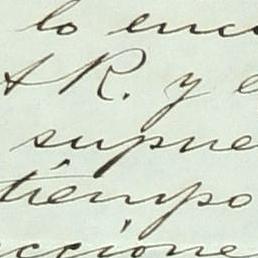 lo enc
A R. y e
supue
tiempo
ccione